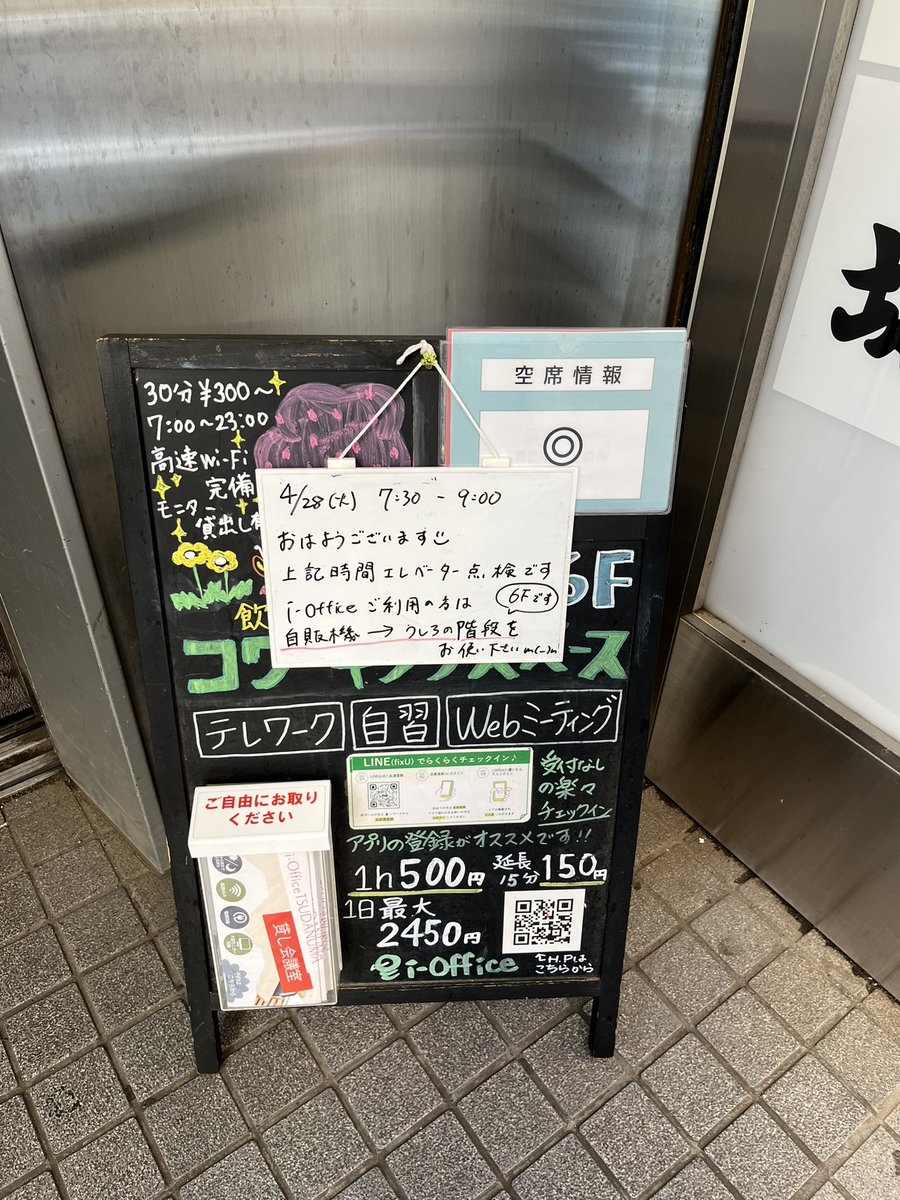 30分¥300〜
7:00〜23:00
高速Wi-Fi
完備
モニター
貸出し
空席情報
◎
4/28(火) 7:30 - 9:00
おはようございます
上記時間エレベーター点検です
i-Officeご利用の方は
6Fです
自販機→うしろの階段を
お使い下さいm(_ _)m
6F
飲
コワーキングスペース
テレワーク 自習 Webミーティング
LINE(fixU)でらくらくチェックイン♪
受付なし
の楽々
チェックイン
アプリの登録がオススメです!!
1h500円 延長15分150円
1日最大
2450円
i-Office
H.Pは
こちらから
ご自由にお取り
ください
i-OfficeTSUDANUMA
貸し会議室